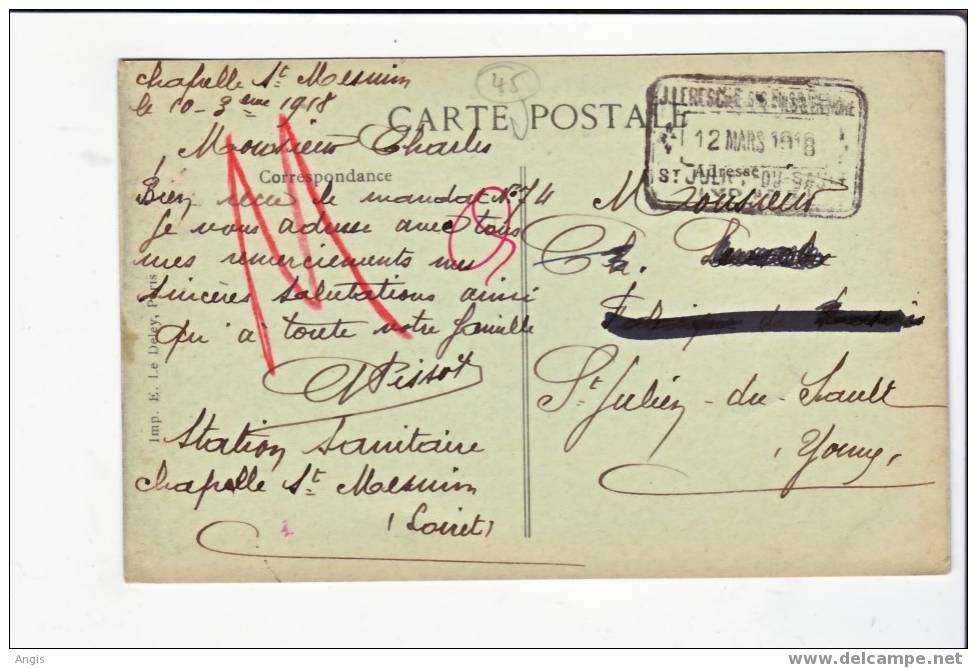 Chapelle St Mesmin
le 10 - 3ème 1918
45
CARTE POSTALE
Monsieur Charles
Correspondance
Bien reçu le mandat No 74
Je vous adresse avec tous
mes remerciements mes
sincères salutations ainsi
qu'à toute votre famille
Pissot
Station Sanitaire
Chapelle St Mesmin
(Loiret)
1
Imp. E. Le Deley, Paris
12 MARS 1918
Adresse
ST JULIEN-DU-SAULT
Monsieur
Ch.
St Julien-du-Sault
(Yonne)
Angis
delcampe.net